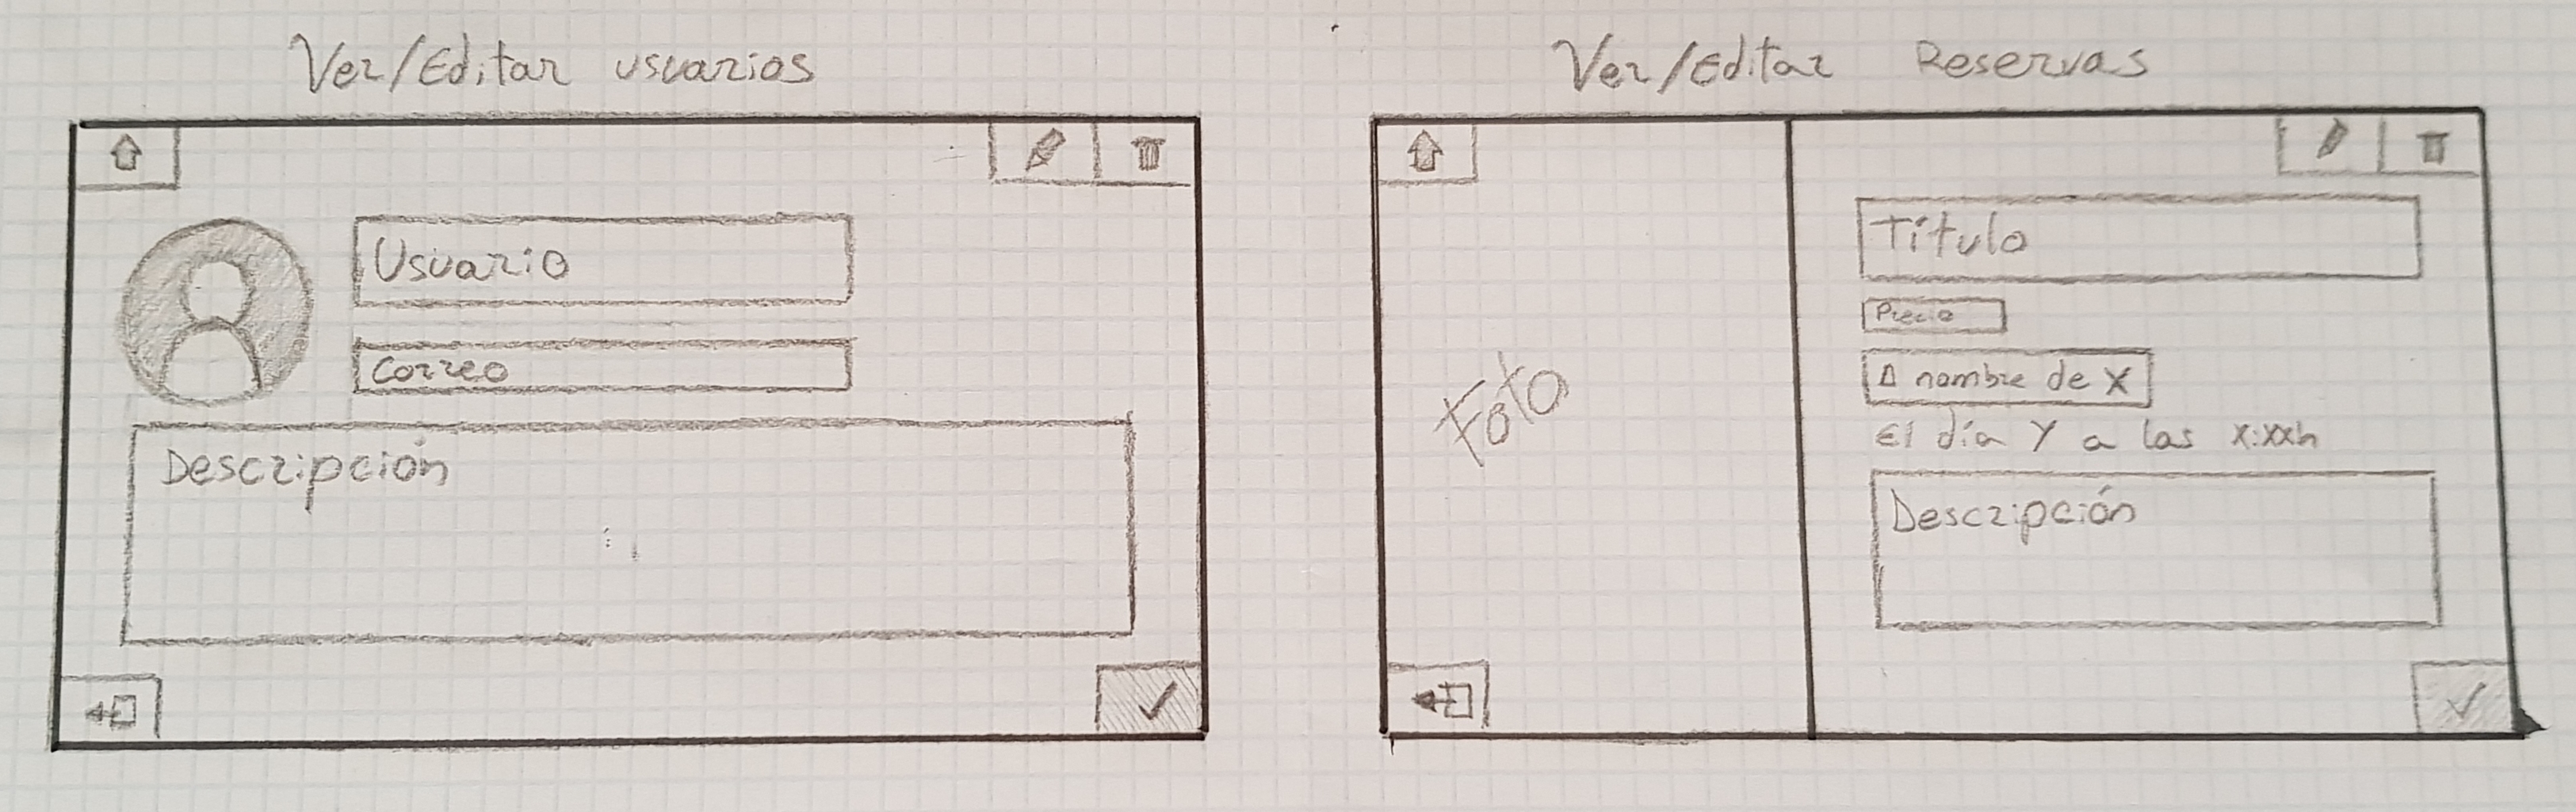 Ver/Editar usuarios
Usuario
Correo
Descripción
Ver/Editar Reservas
Foto
Título
Precio
A nombre de X
El día Y a las X:XXh
Descripción